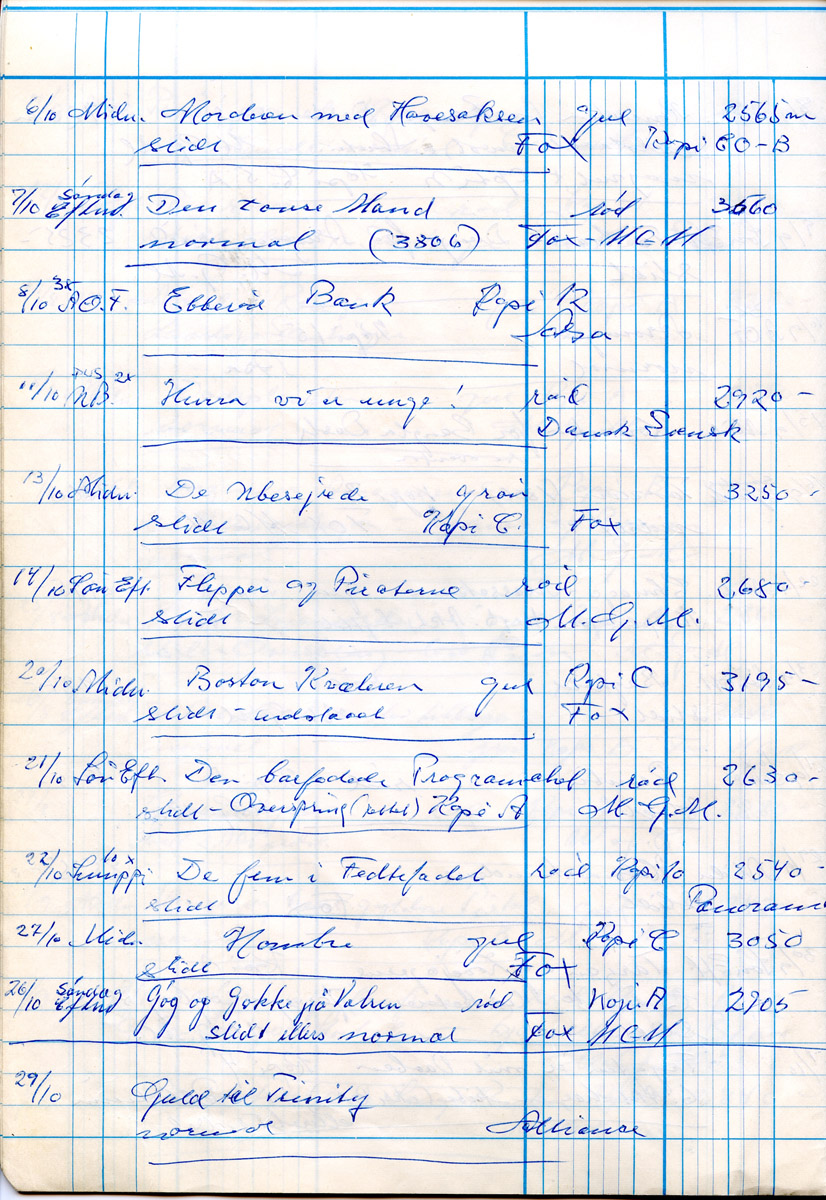 6/10 Midn. Mordeon med Havesaksen gul 2565 m
slidt Fox Kopi CO-B
7/10 Søndag Eftmd. Den tause Mand rød 3560
normal (3806) Fox-MGM
8/10 3x A.O.F. Ebberød Bank Kopi 12
11/10 2x Hurra vi er unge! rød 2920-
Dansk Svensk
13/10 Midn. De Ubesejrede grøn 3250-
slidt Kopi C. Fox
14/10 Søn Eft. Flipper og Piraterne rød 2680-
slidt M.G.M.
20/10 Midn. Boston Kvæleren gul Kopi C 3195-
slidt - Fox
21/10 Søn Eft. Den barfodede Programchef rød 2630-
slidt - Overspring Kopi A M.G.M.
22/10 10x De fem i Fedtefadet rød Kopi 10 2540-
slidt Panorama
27/10 Midn. Hombre gul Kopi C 3050
slidt Fox
26/10 Søndag Eftmd Gøg og Gokke på Valsen rød Kopi A 2705
slidt ellers normal Fox MGM
29/10 Guld til Trinity
normal Alliance